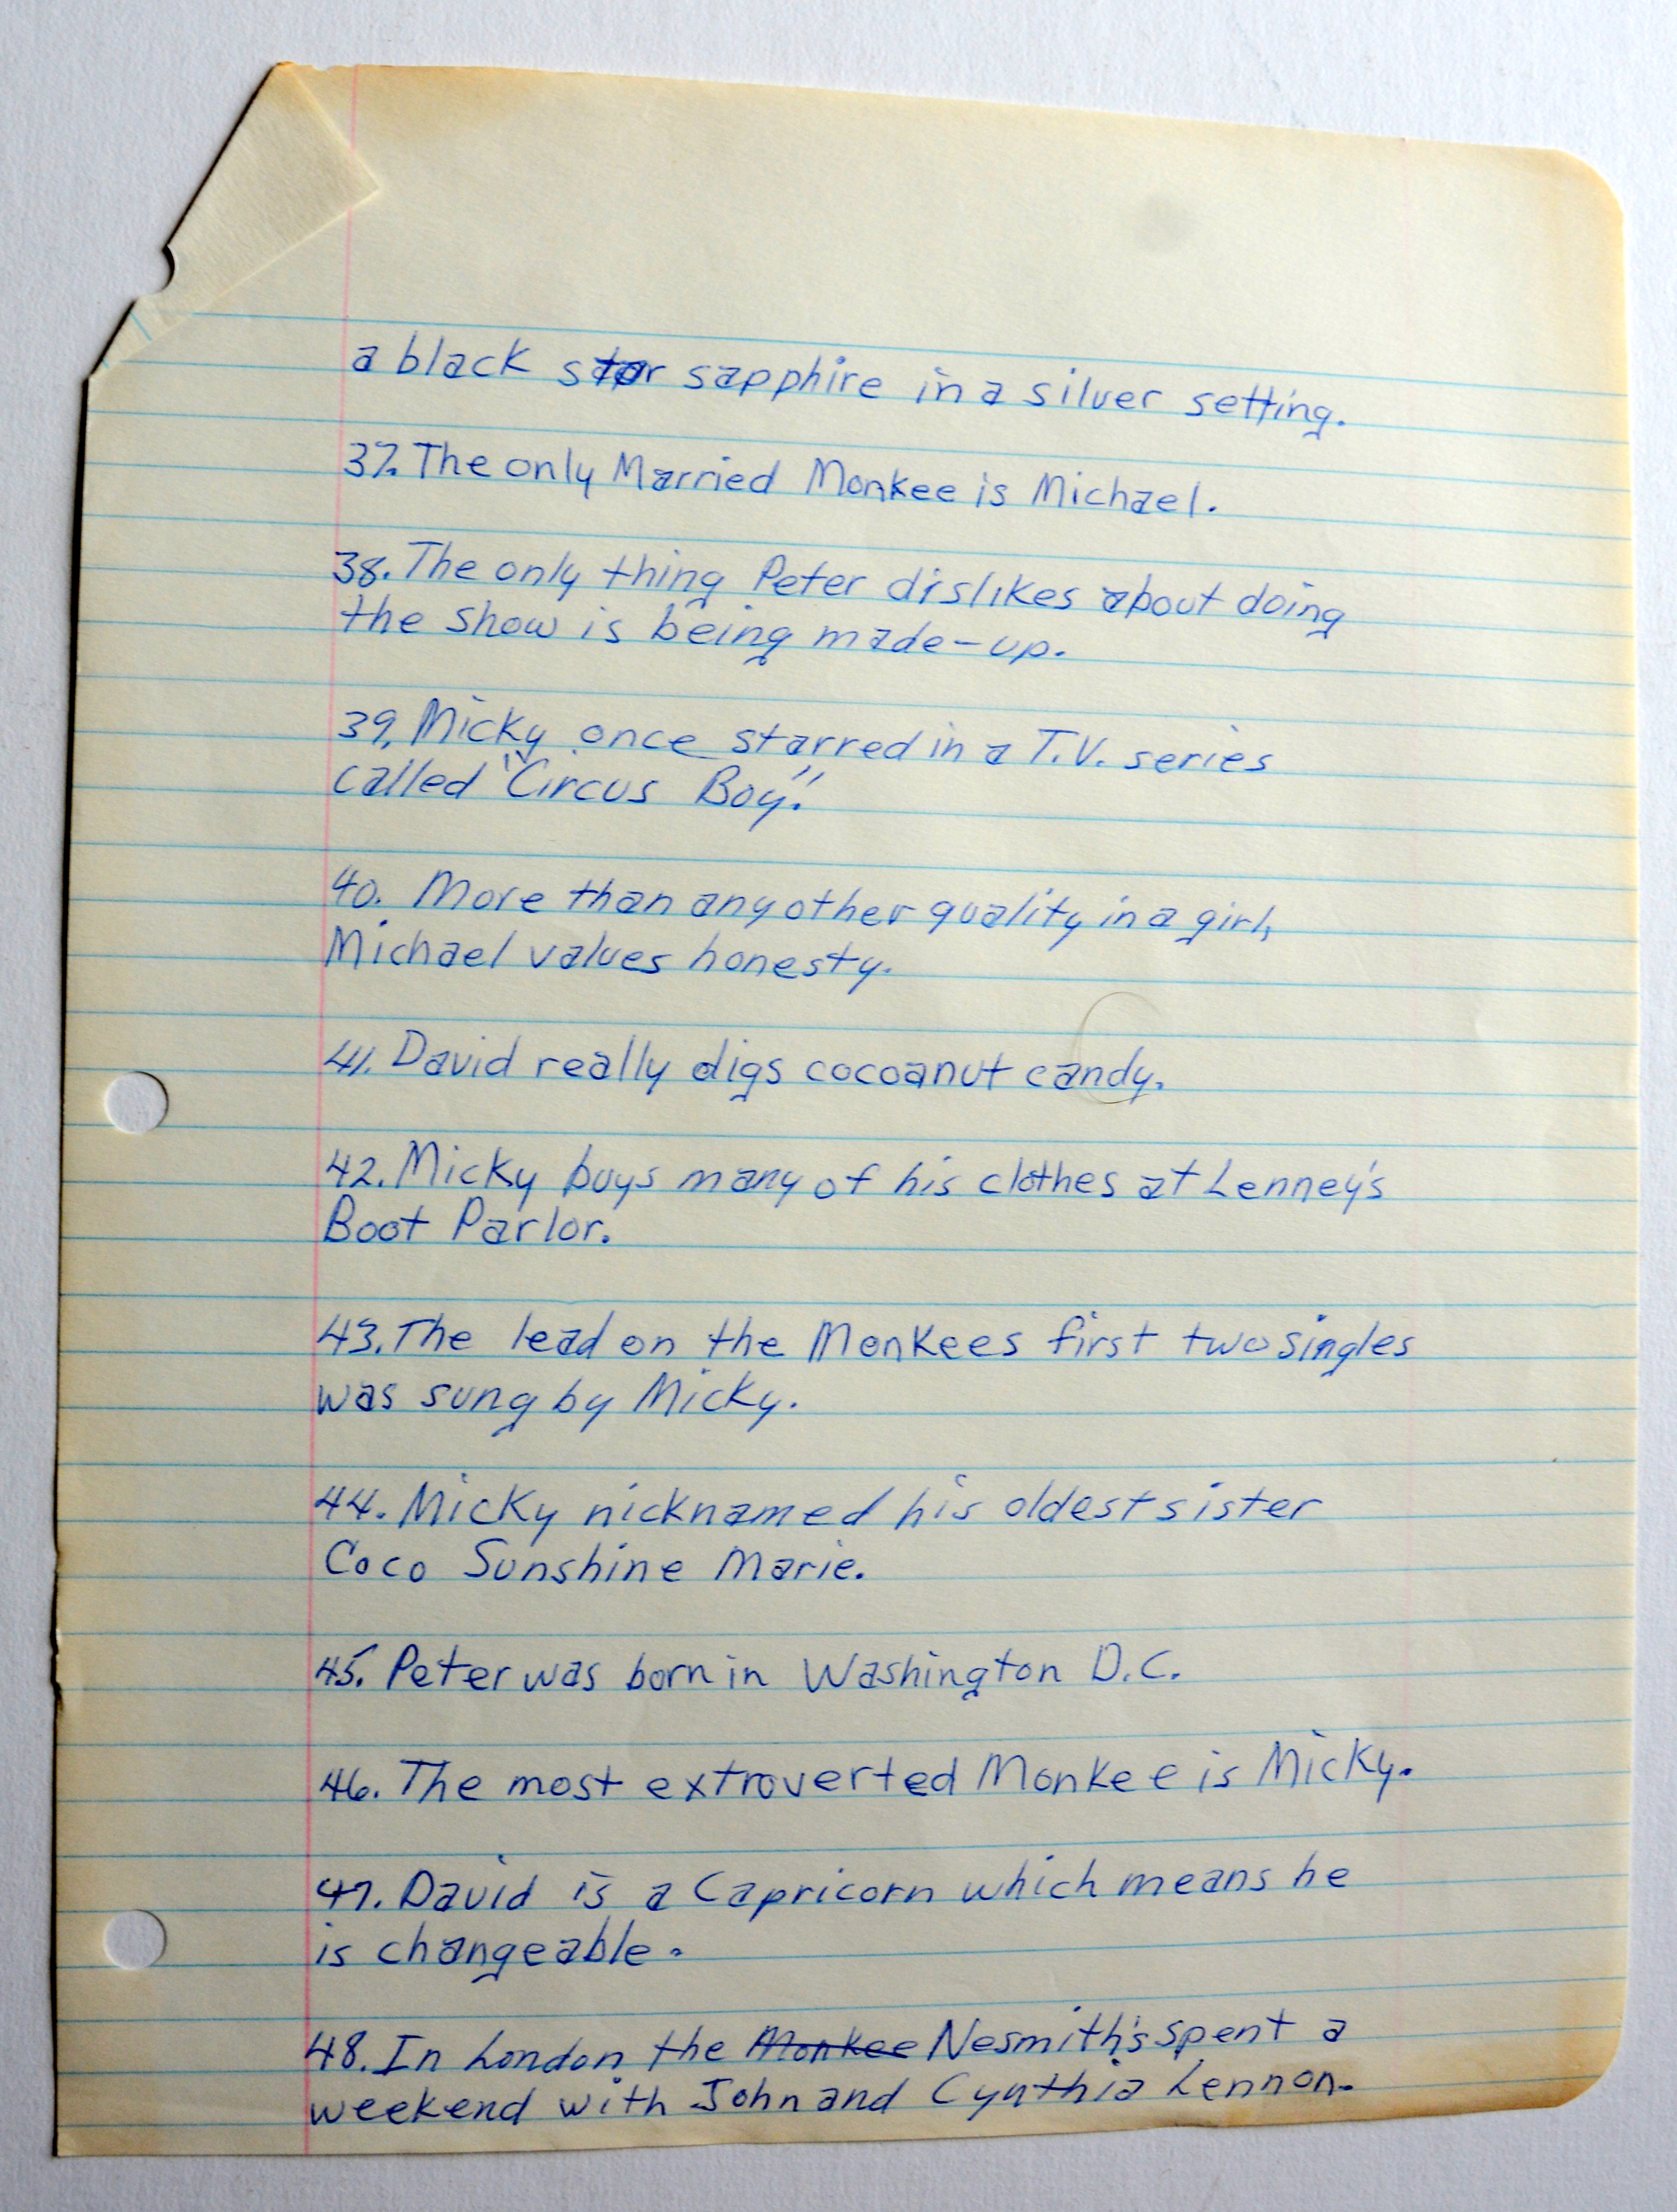 a black star sapphire in a silver setting.
37. The only Married Monkee is Michael.
38. The only thing Peter dislikes about doing
the show is being made-up.
39. Micky once starred in a T.V. series
called "Circus Boy."
40. More than any other quality in a girl,
Michael values honesty.
41. David really digs cocoanut candy.
42. Micky buys many of his clothes at Lenney's
Boot Parlor.
43. The lead on the Monkees first two singles
was sung by Micky.
44. Micky nicknamed his oldest sister
Coco Sunshine Marie.
45. Peter was born in Washington D.C.
46. The most extroverted Monkee is Micky.
47. David is a Capricorn which means he
is changeable.
48. In London the Monkee Nesmith's spent a
weekend with John and Cynthia Lennon.